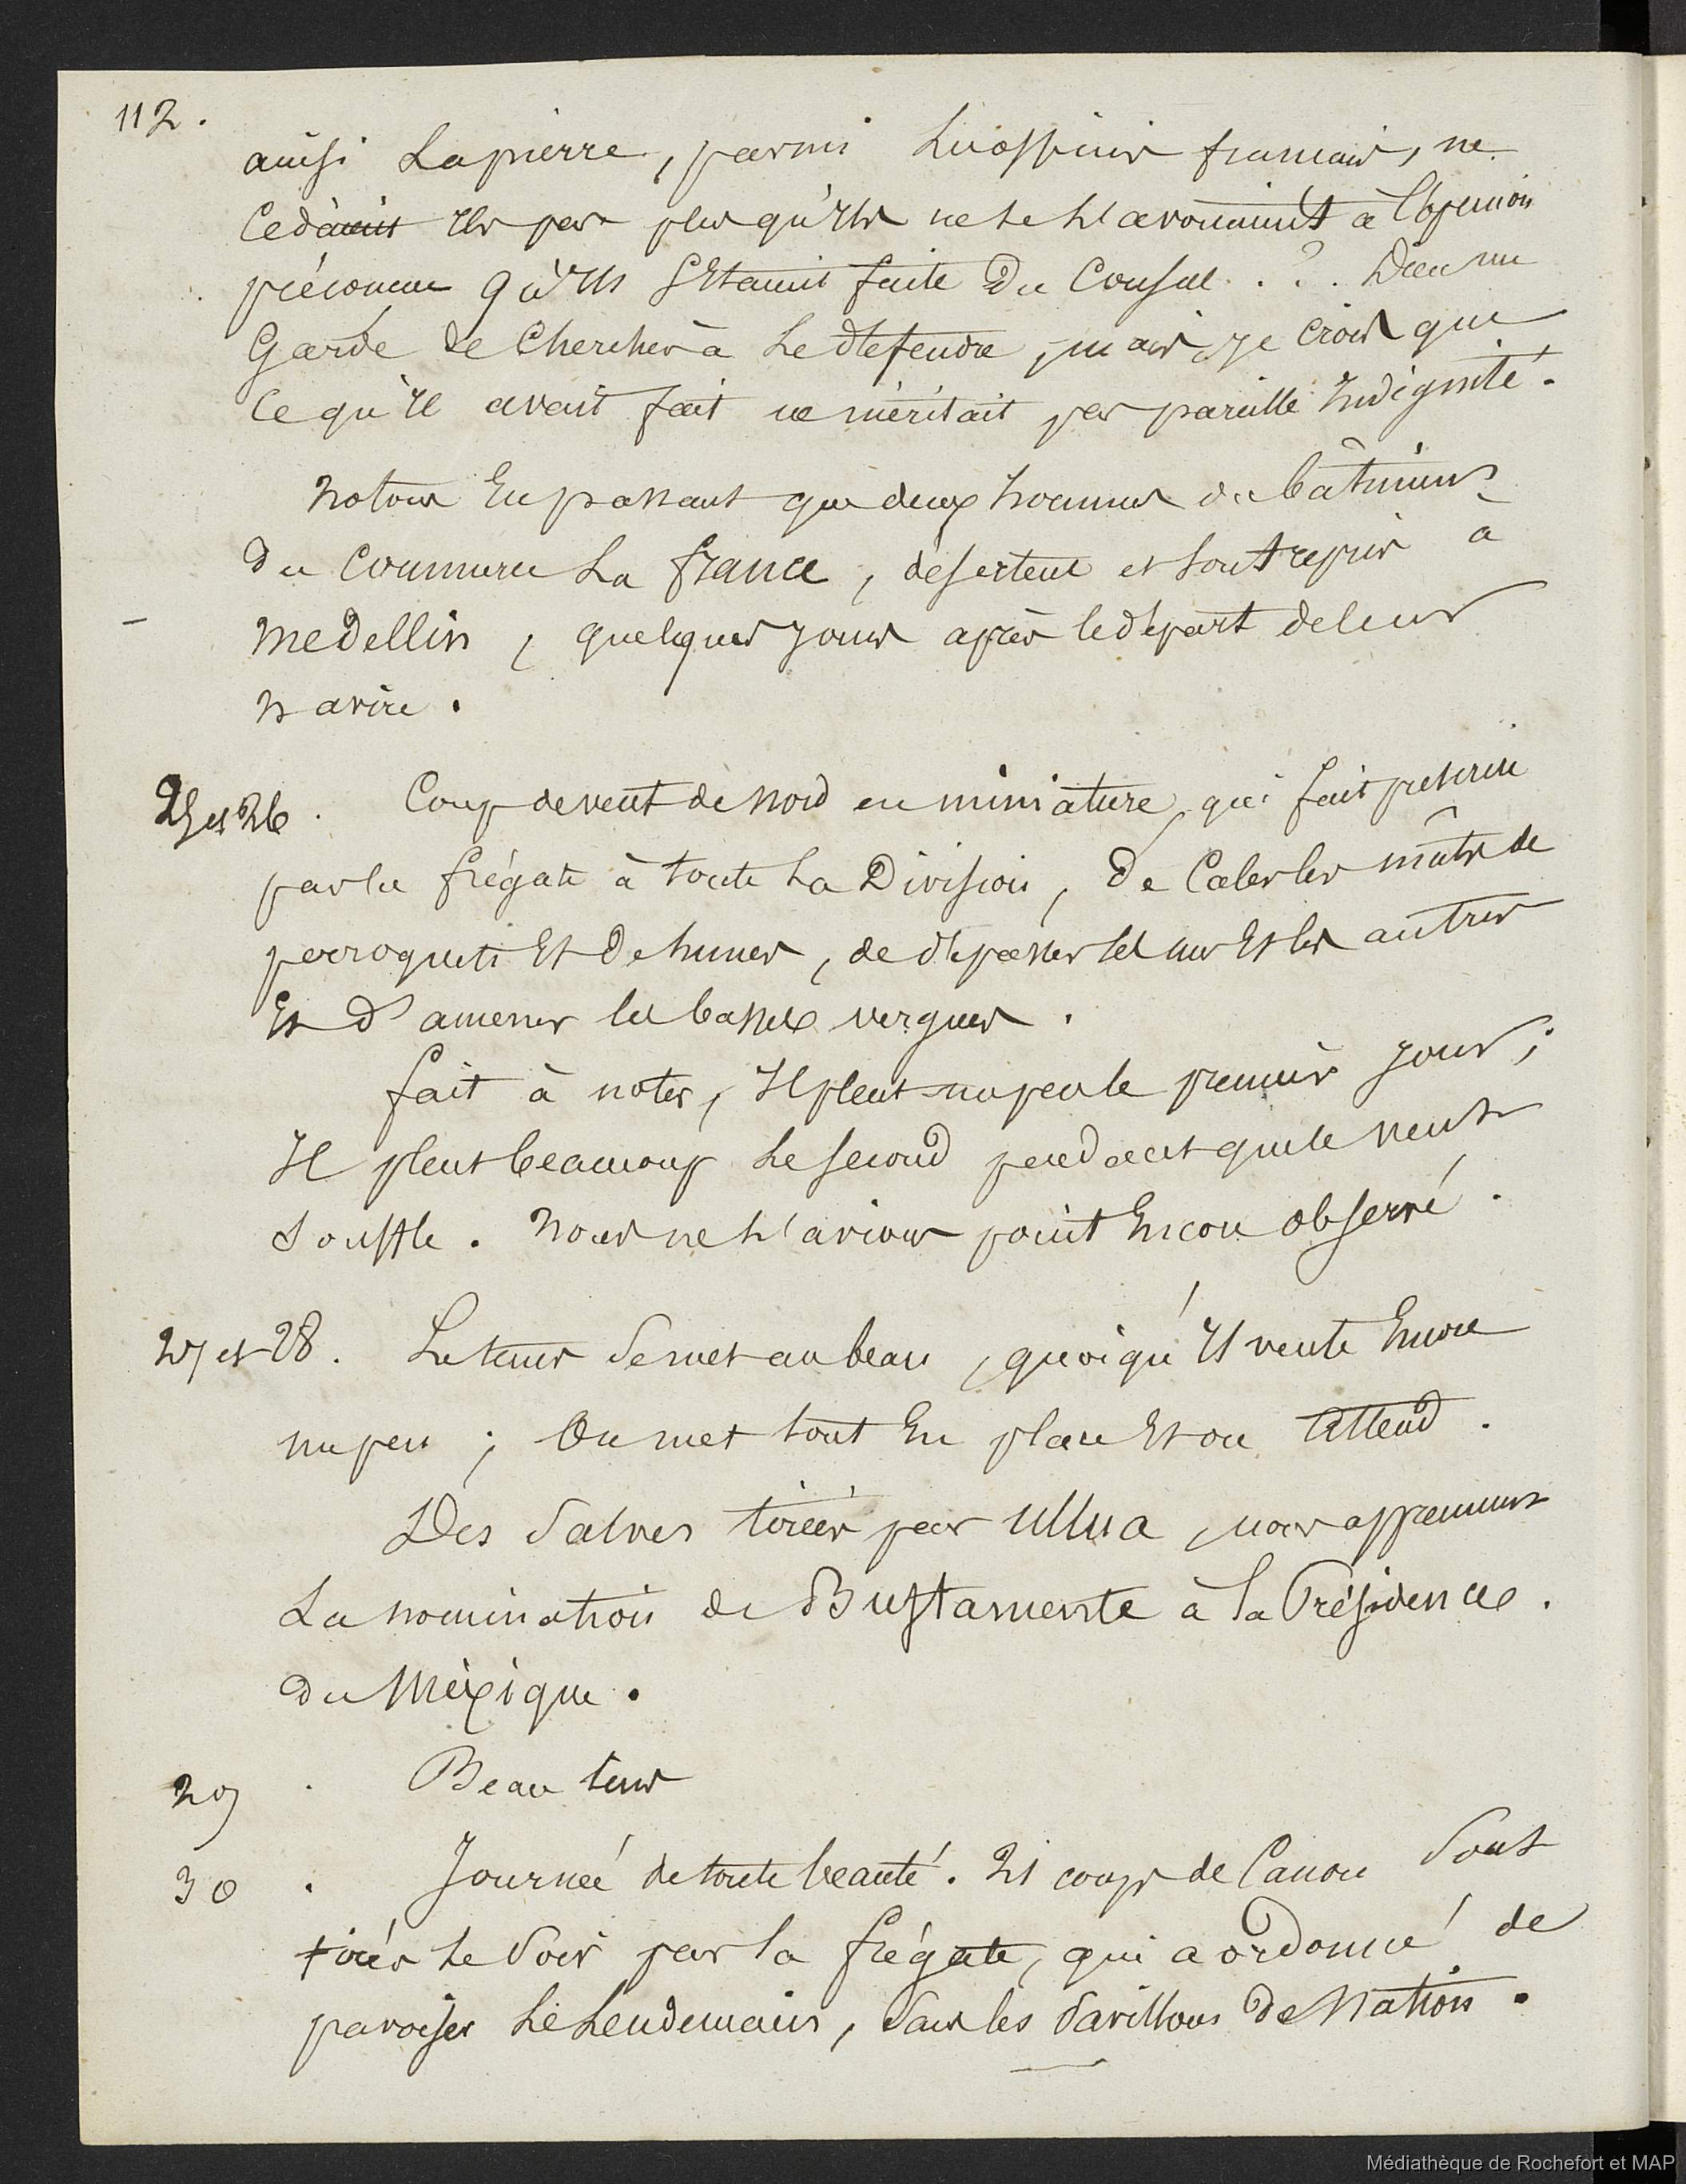 112.
ainsi La pierre, parmi Les officiers francais, ne
Cedaient Ils pas plus qu'Ils ne se L'avouaient à l'opinion
préconcue qu'Ils S'Etaient faite Du Consul . ? . Dieu me
Garde de Chercher à Le défendre, mais je Crois que
Ce qu'Il avait fait ne méritait pas pareille Indignité.
Notons En passant que deux hommes du bâtiment
Du Commerce La france, désertent et sont repris à
Medellin, quelques jours après le départ de leur
Navire.
25 et 26. Coup de vent de Nord en miniature, qui fait prescrire
par la frégate à toute La Division, De Caler les mâts de
perroquets Et De hunes, de dépasser les uns Et les autres
Et D'amener les basses vergues.
fait à noter, Il pleut un peu le premier jour;
Il pleut beaucoup Le Second pendant que le vent
Souffle. Nous ne L'avions point Encore observé.
27 et 28. Le tems Se met au beau, quoiqu'Il vente Encore
un peu; On met tout En place Et on Attend.
Des Salves tirées par Ullua, nous apprennent
La nomination de Bustamente à la Présidence.
Du Méxique.
29 . Beau tems
30 . Journée de toute beauté. 21 coups de Canon Sont
tirés Le Soir par la frégate, qui a ordonné de
pavoiser Le Lendemain, Sans les Pavillons De Nation.
Médiathèque de Rochefort et MAP